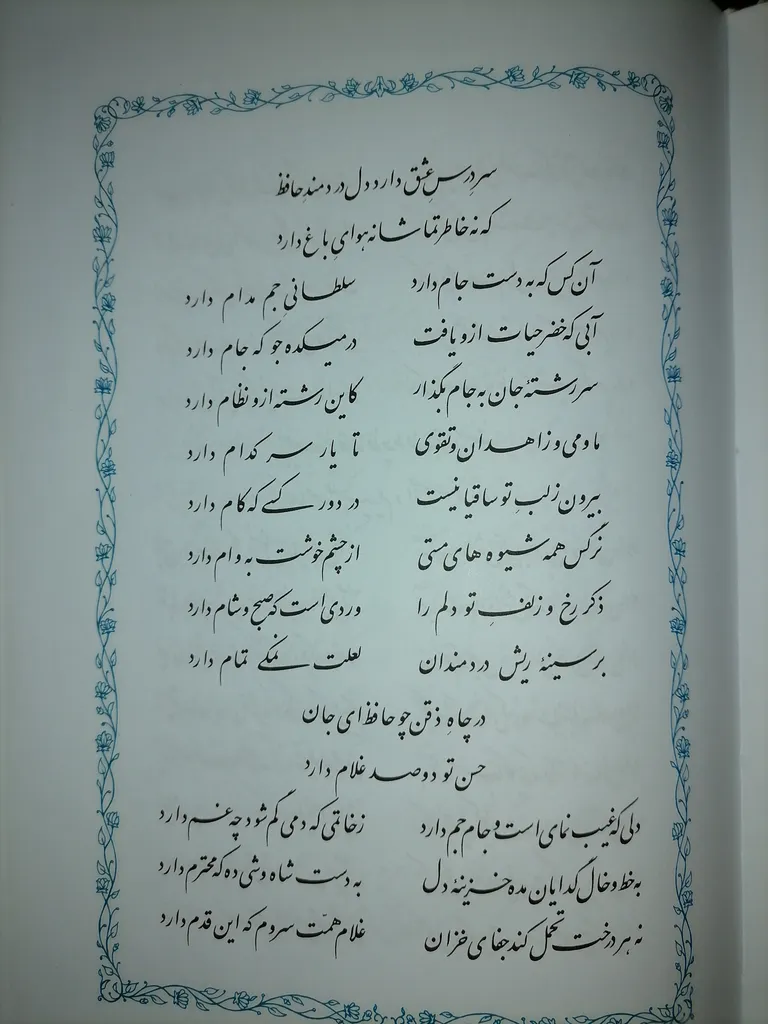 سر درسِ عشق دارد دل دردمندِ حافظ
که نه خاطر تماشا نه هوایِ باغ دارد
آن کس که به دست جام دارد سلطانیِ جم مدام دارد
آبی که خضر حیات ازو یافت در میکده جو که جام دارد
سررشتهٔ جان به جام بگذار کاین رشته ازو نظام دارد
ما و می و زاهدان و تقوی تا یار سر کدام دارد
بیرون ز لبِ تو ساقیا نیست در دور کسی که کام دارد
نرگس همه شیوه های مستی از چشم خوشت به وام دارد
ذکر رخ و زلفِ تو دلم را وردی است که صبح و شام دارد
بر سینهٔ ریش دردمندان لعلت نمکی تمام دارد
در چاهِ ذقن چو حافظ ای جان
حسن تو دو صد غلام دارد
دلی که غیب نمای است و جام جم دارد ز خاتمی که دمی گم شود چه غم دارد
به خط و خال گدایان مده خزینهٔ دل به دست شاه وشی ده که محترم دارد
نه هر درخت تحمل کند جفای خزان غلام همّت سروم که این قدم دارد